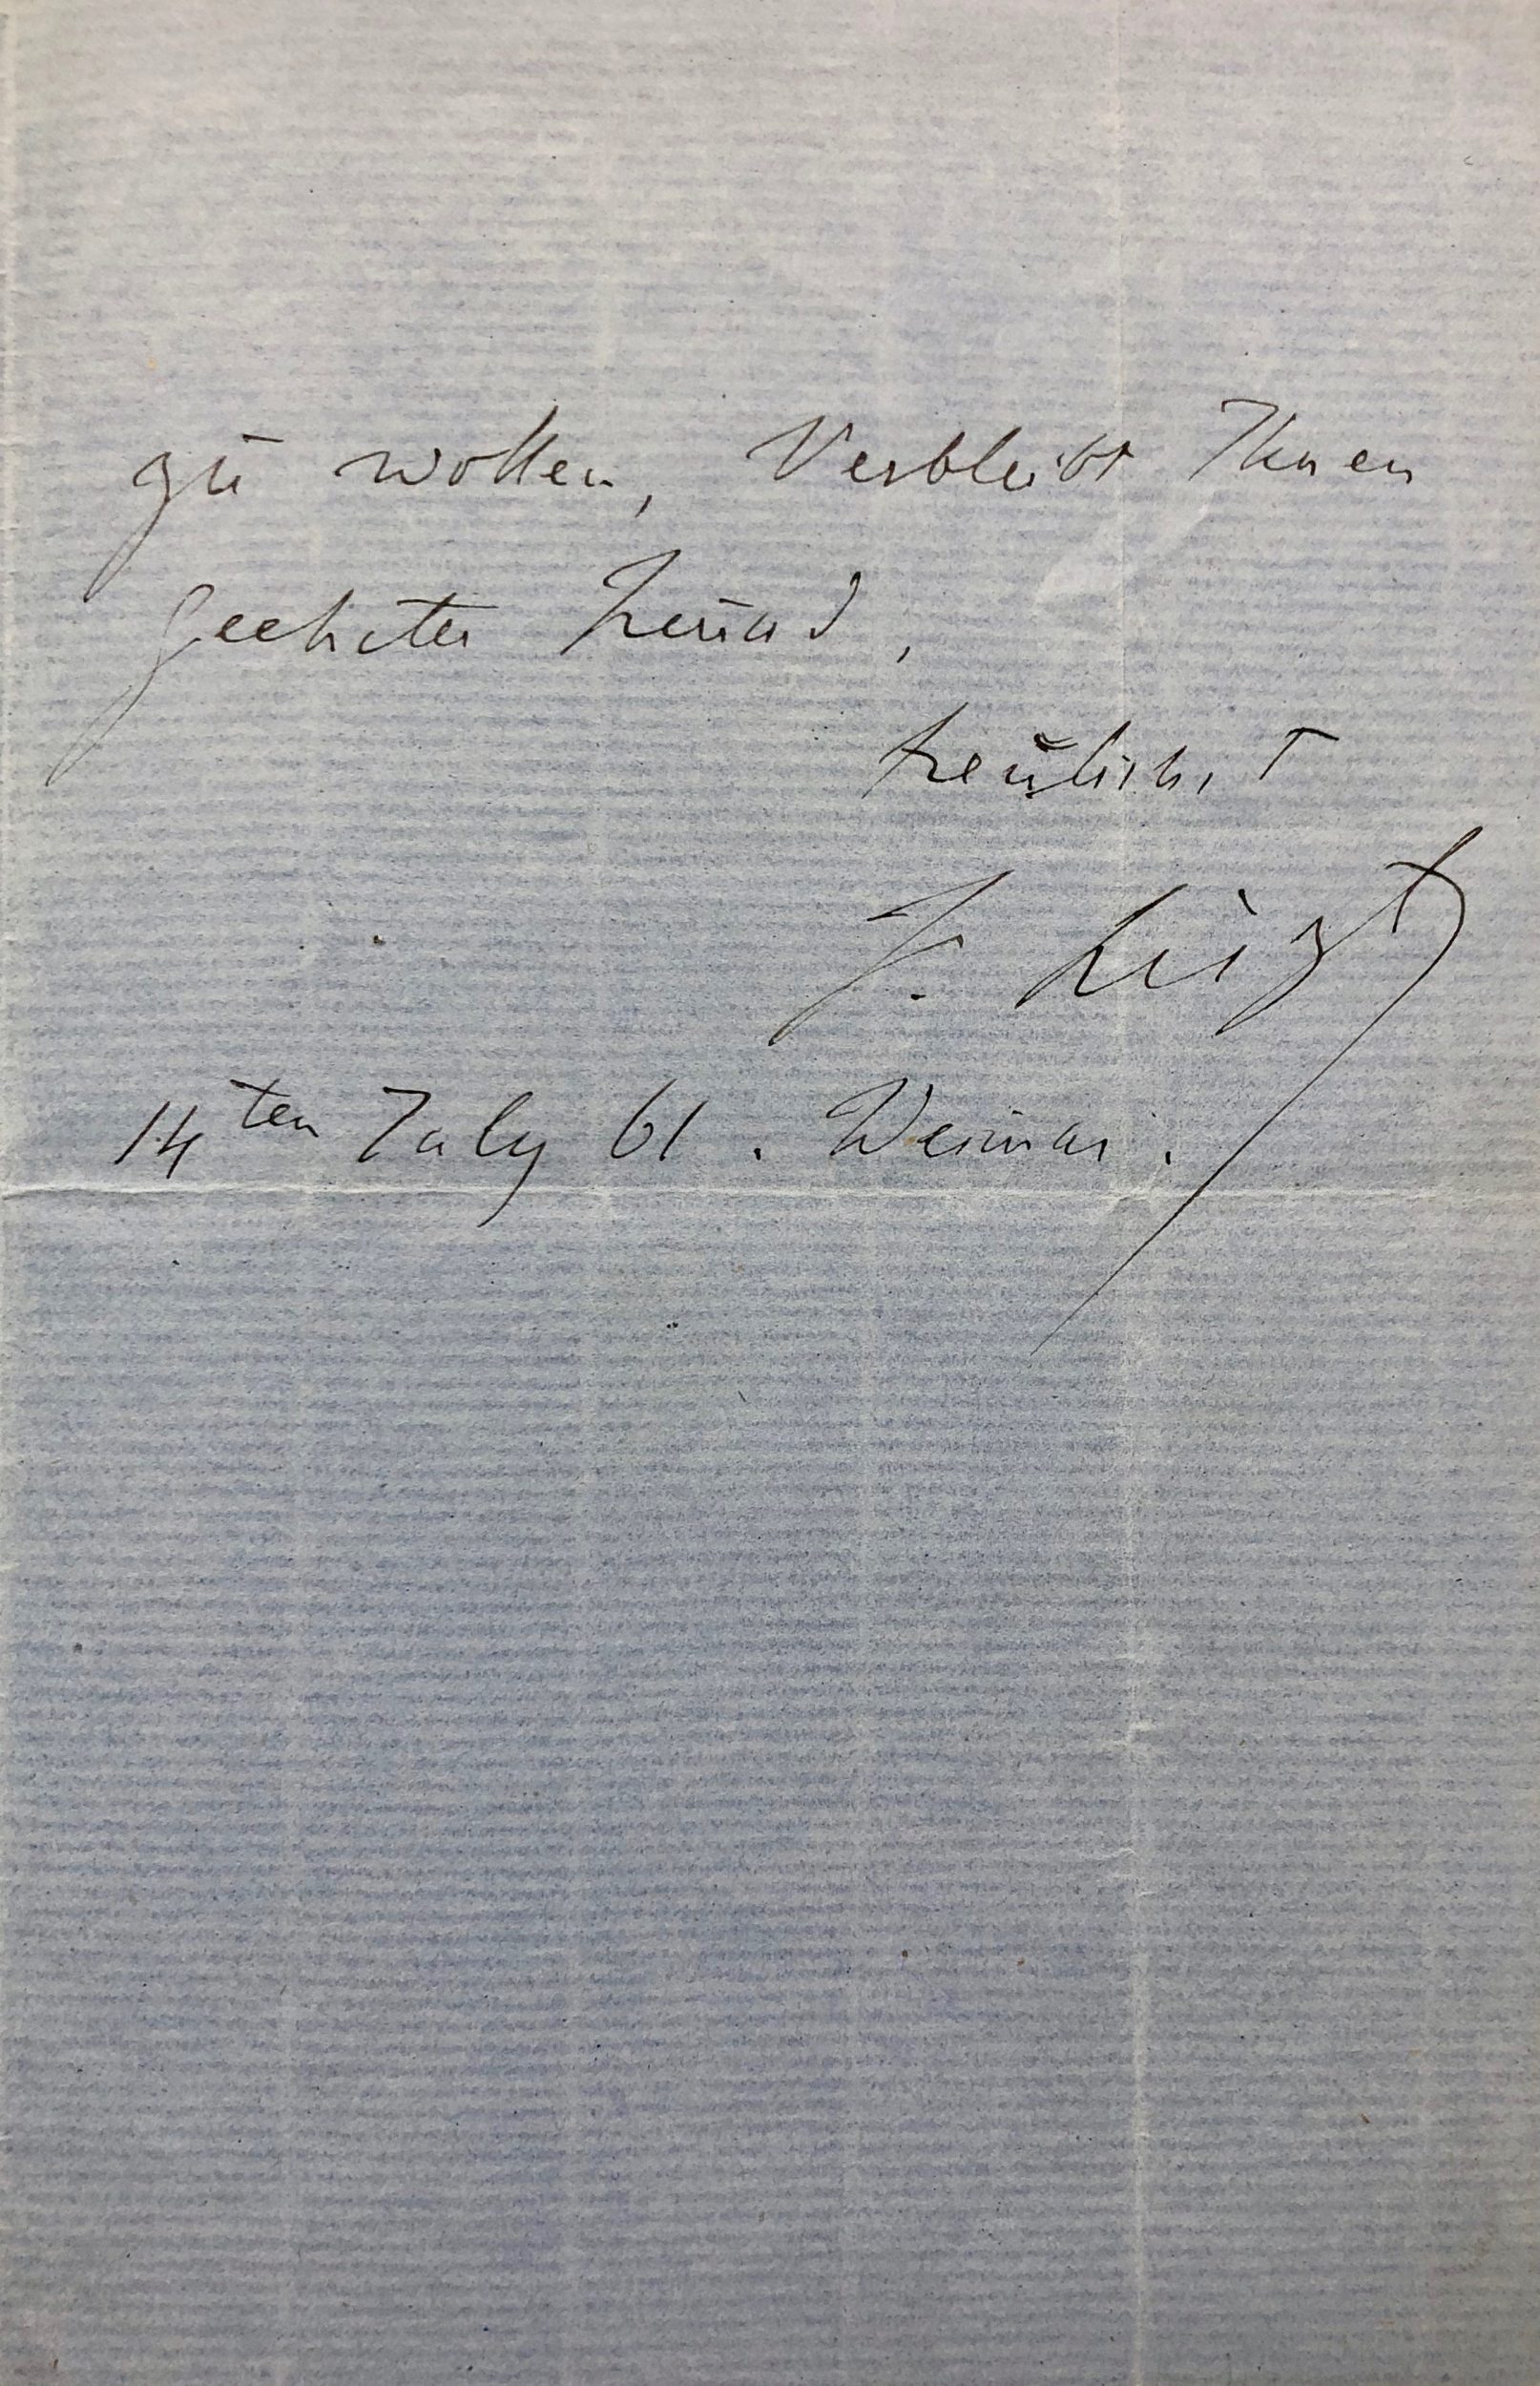 zu wollen, Verbleibt Ihnen
geehrter Freund,
treulichst
F. Liszt
14ten July 61. Weimar.